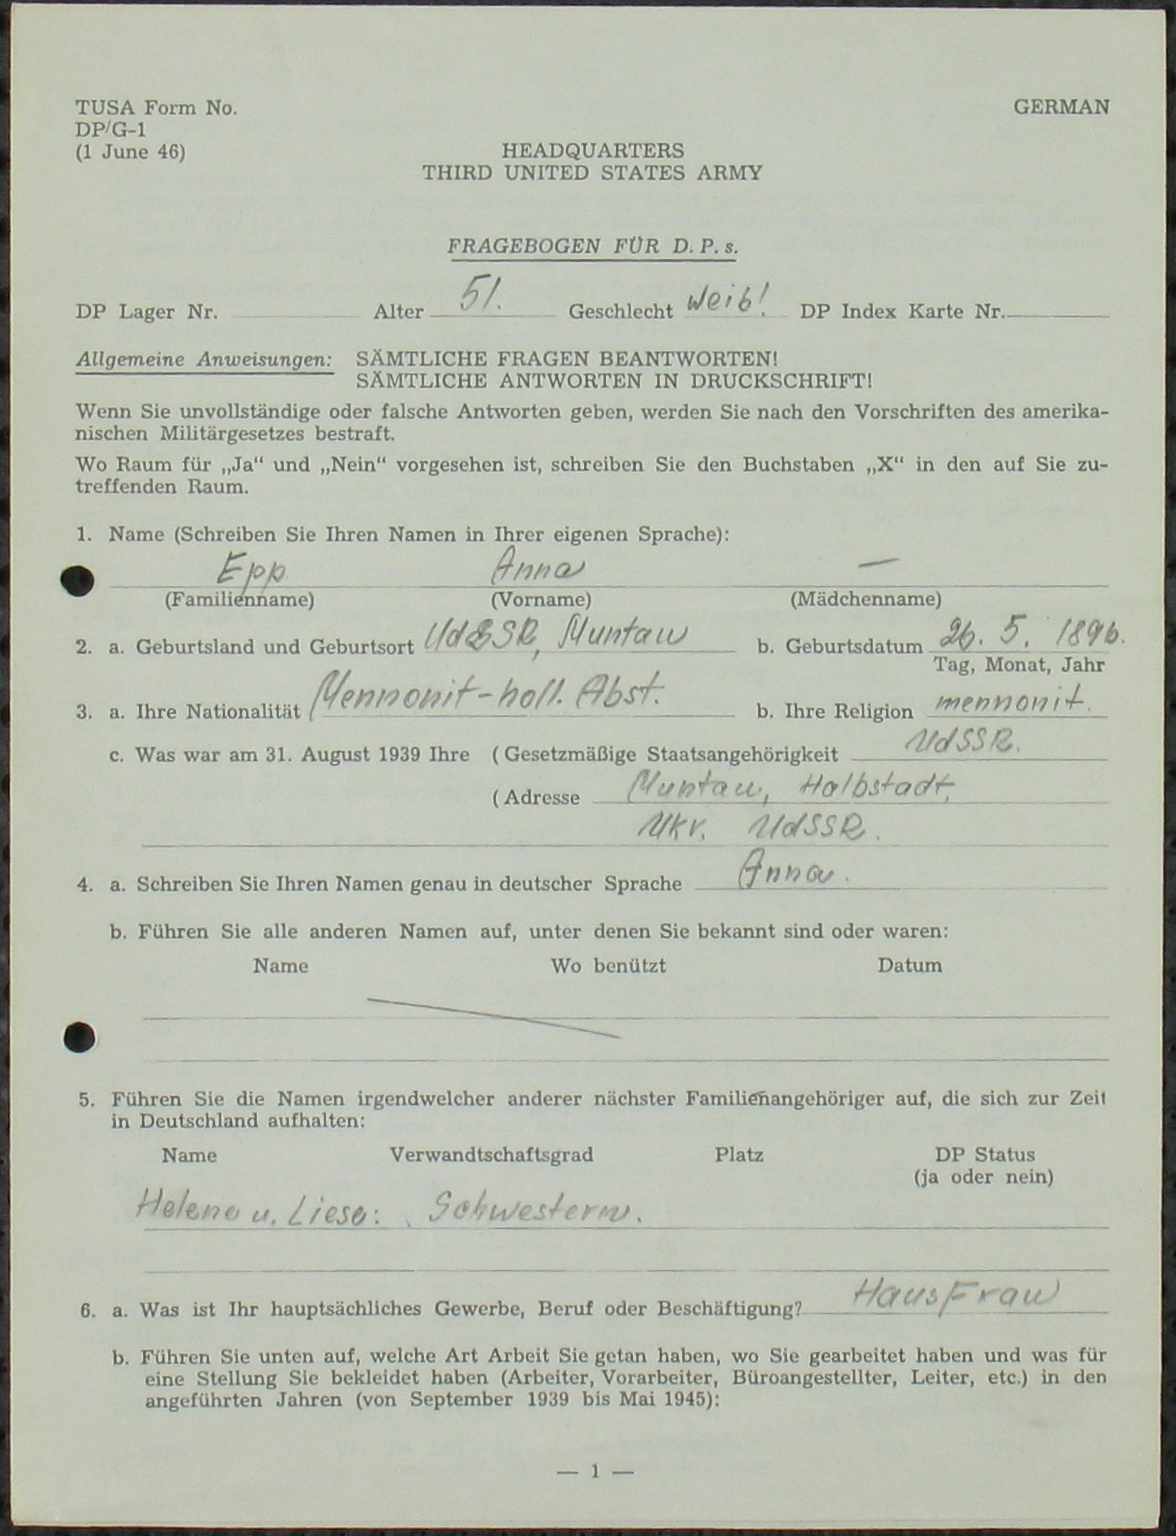 TUSA Form No.
DP/G-1
(1 June 46)
GERMAN
HEADQUARTERS
THIRD UNITED STATES ARMY
FRAGEBOGEN FÜR D. P. s.
DP Lager Nr. Alter 51. Geschlecht Weib! DP Index Karte Nr.
Allgemeine Anweisungen: SÄMTLICHE FRAGEN BEANTWORTEN!
SÄMTLICHE ANTWORTEN IN DRUCKSCHRIFT!
Wenn Sie unvollständige oder falsche Antworten geben, werden Sie nach den Vorschriften des amerika-
nischen Militärgesetzes bestraft.
Wo Raum für „Ja“ und „Nein“ vorgesehen ist, schreiben Sie den Buchstaben „X“ in den auf Sie zu-
treffenden Raum.
1. Name (Schreiben Sie Ihren Namen in Ihrer eigenen Sprache):
Epp Anna —
(Familienname) (Vorname) (Mädchenname)
2. a. Geburtsland und Geburtsort UdSSR, Muntau b. Geburtsdatum 26. 5. 1896.
Tag, Monat, Jahr
3. a. Ihre Nationalität Mennonit-holl. Abst. b. Ihre Religion mennonit.
c. Was war am 31. August 1939 Ihre ( Gesetzmäßige Staatsangehörigkeit UdSSR.
( Adresse Muntau, Halbstadt,
Ukr. UdSSR.
4. a. Schreiben Sie Ihren Namen genau in deutscher Sprache Anna.
b. Führen Sie alle anderen Namen auf, unter denen Sie bekannt sind oder waren:
Name Wo benützt Datum
5. Führen Sie die Namen irgendwelcher anderer nächster Familienangehöriger auf, die sich zur Zeit
in Deutschland aufhalten:
Name Verwandtschaftsgrad Platz DP Status
(ja oder nein)
Helene u. Liese: Schwestern.
6. a. Was ist Ihr hauptsächliches Gewerbe, Beruf oder Beschäftigung? HausFrau
b. Führen Sie unten auf, welche Art Arbeit Sie getan haben, wo Sie gearbeitet haben und was für
eine Stellung Sie bekleidet haben (Arbeiter, Vorarbeiter, Büroangestellter, Leiter, etc.) in den
angeführten Jahren (von September 1939 bis Mai 1945):
— 1 —